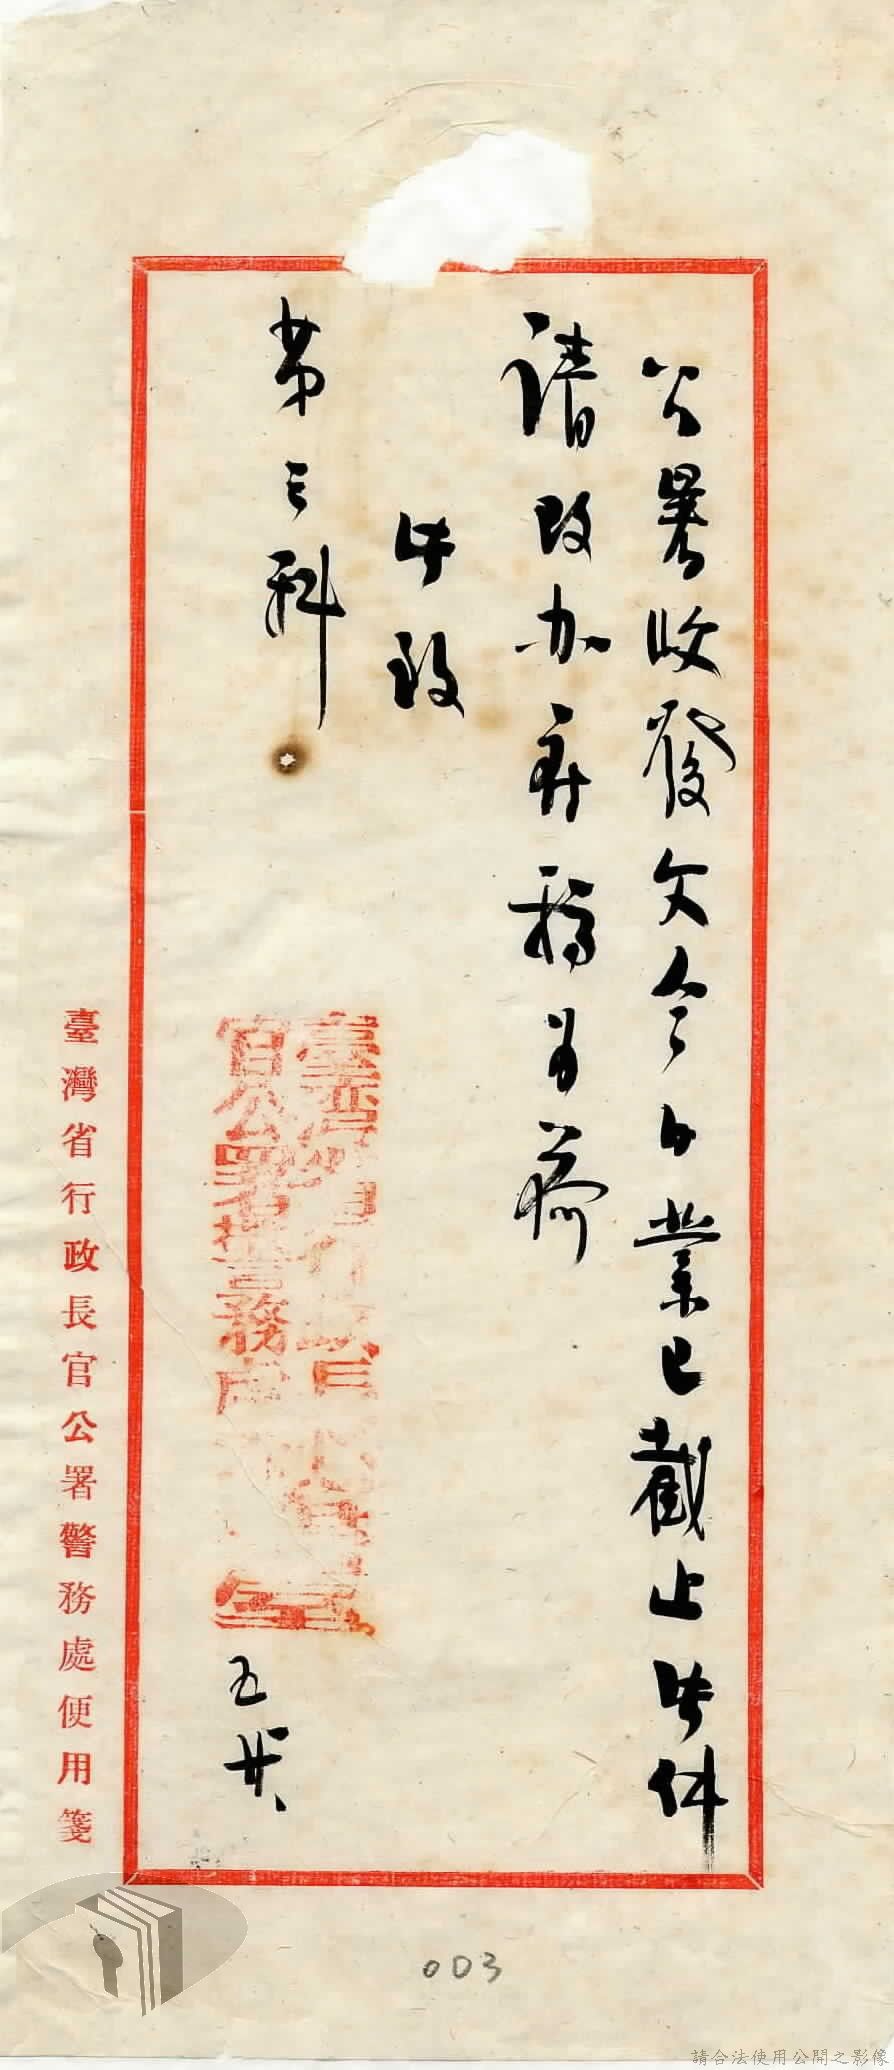 公署收發文今日業已截止此件
請改办弄稿為荷
此致
第三科
臺灣省行政長
官公署警務處 室
五 廿、
臺灣省行政長官公署警務處便用箋
003
請合法使用公開之影像